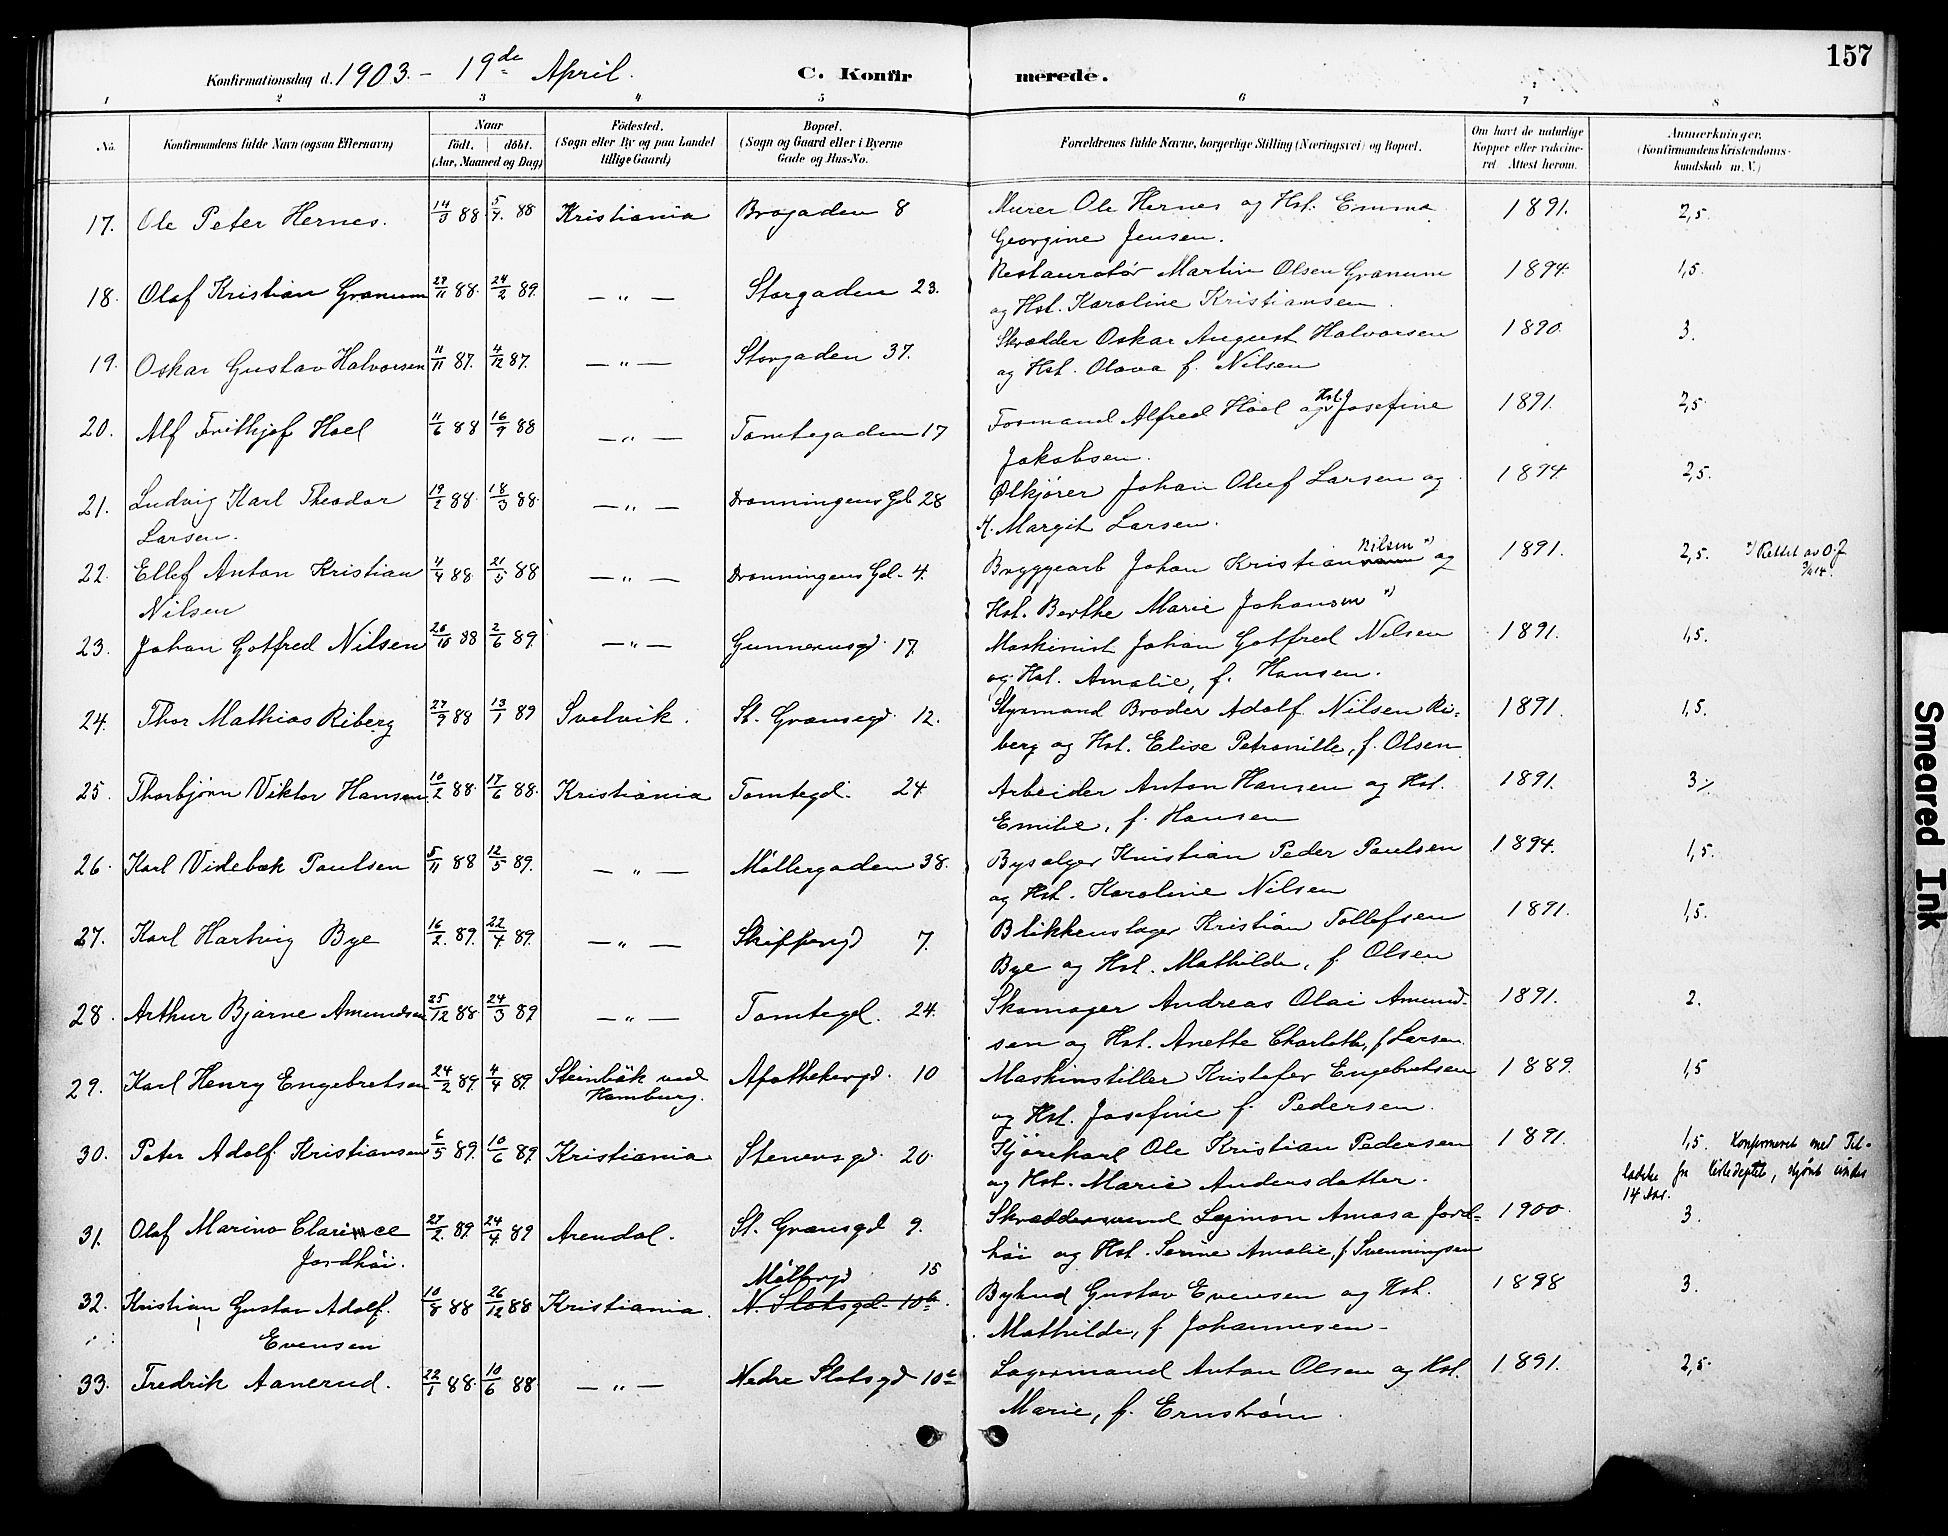 157
Konfirmationsdag d. 1903. - 19de April. C. Konfirmerede.
1 2 3 4 5 6 7 8
No. Konfirmandens fulde Navn (ogsaa Efternavn) Naar Født. døbt. (Aar, Maaned og Dag) Fødested. (Sogn eller By og paa Landet tillige Gaard) Bopæl. (Sogn og Gaard eller i Byerne Gade og Hus-No. Forældrenes fulde Navne, borgerlige Stilling (Næringsvei) og Bopæl. Om havt de naturlige Kopper eller vakcineret Attest herom. Anmærkninger. (Konfirmandens Kristendomskundskab m. V.)
17. Ole Peter Hernes. 14/3 88 5/7. 88 Kristiania Brogaden 8 Murer Ole Hernes og Hst. Emma 1891. 2,5.
Georgine Jensen.
18. Olaf Kristian Granum 27/11 88. 24/2 89. — " — Storgaden 23. Restauratør Martin Olsen Granum 1894 1,5.
og Hst. Karoline Kristiansen.
19. Oskar Gustav Halvorsen 11/11 87. 4/12 87. — " — Storgaden 37. Skrædder Oskar August Halvorsen 1890. 3.
og Hst. Olava f. Nilsen
20. Alf Frithjof Hoel 11/6 88 16/9 88 — " — Tomtegaden 17 Formand Alfred Hoel og Hst. Josefine 1891. 2,5.
Jakobsen.
21. Ludvig Karl Theodor 19/2 88. 18/3 88. — " — Dronningens Gd 28 Ølkjører Johan Oluf Larsen og 1894 2,5.
Larsen. H. Margit Larsen.
22. Ellef Anton Kristian 11/4 88. 21/5 88 — " — Dronningens Gd. 4. Bryggearb Johan Kristian Nilsen *) og 1891. 2,5. *) Rettet av O.J
Nilsen Hst. Berthe Marie Johansen *)
23. Johan Gotfred Nilsen 26/10 88 2/6 89. — " — Gunnerusgd 17. Maskinist Johan Gotfred Nilsen 1891. 1,5.
og Hst. Amalie, f. Hansen.
24. Thor Mathias Riberg 27/9 88 13/1 89 Svelvik. St. Grænsegd. 12. Styrmand Broder Adolf Nilsen Ri- 1891. 1,5.
berg og Hst. Elise Petronille, f. Olsen
25. Thorbjørn Viktor Hansen 10/2 88. 17/6 88. Kristiania Tomtegd. 24. Arbeider Anton Hansen og Hst. 1891. 3
Emilie, f. Hansen
26. Karl Videbæk Paulsen 5/11 88 12/5 89. — " — Møllergaden 38. Bysælger Kristian Peder Paulsen 1894. 1,5.
og Hst. Karoline Nilsen
27. Karl Hartvig Bye 16/2. 89. 22/4 89. — " — Skippergd 7. Blikkenslager Kristian Tollefsen 1891. 1,5.
Bye og Hst. Mathilde, f. Olsen
28. Arthur Bjarne Amundsen 25/12 88. 24/3 89 — " — Tomtegd. 24. Skomager Andreas Olai Amund- 1891. 2.
sen og Hst. Anette Charlotte, f Larsen.
29. Karl Henry Engebretsen 24/2 89. 4/4 89. Steinbäk ved Apothekergd. 10 Maskinstiller Kristofer Engebretsen 1889. 1,5
Hamburg. og Hst. Josefine f. Pedersen.
30. Peter Adolf Kristiansen 6/5 89. 10/6 89. Kristiania Stenersgd. 20. Kjørekarl Ole Kristian Pedersen 1891. 1,5. Konfirmeret med Til-
og Hst. Marie Andersdatter. ladelse fra Kirkedeptet, skjønt under
14 Aar.
31. Olaf Marino Clarince 27/2. 89. 24/4. 89 Arendal. St. Grænsgd 9. Skræddersvend Lajmon Amasa Jord- 1900. 3.
Jordhøi. høi og Hst. Serine Amalie, f. Svenningsen
Møllergd 15
32. Kristian Gustav Adolf. 10/8 88 26/12 88 Kristiania. N. Slotsgd. 10b. Bybud Gustav Evensen og Hst. 1898 3.
Evensen Mathilde, f. Johannesen-
33. Fredrik Aanerud. 22/1 88. 10/6 88 — " — Nedre Slotsgd 10b Lagermand Anton Olsen og Hst. 1891. 2,5.
Marie, f. Ernstrøm.
Smeared Ink